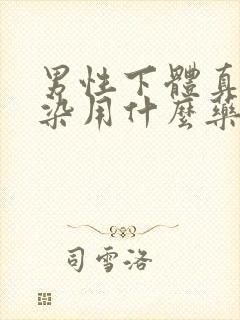 男性下體真
染用什麼藥
司雪洛